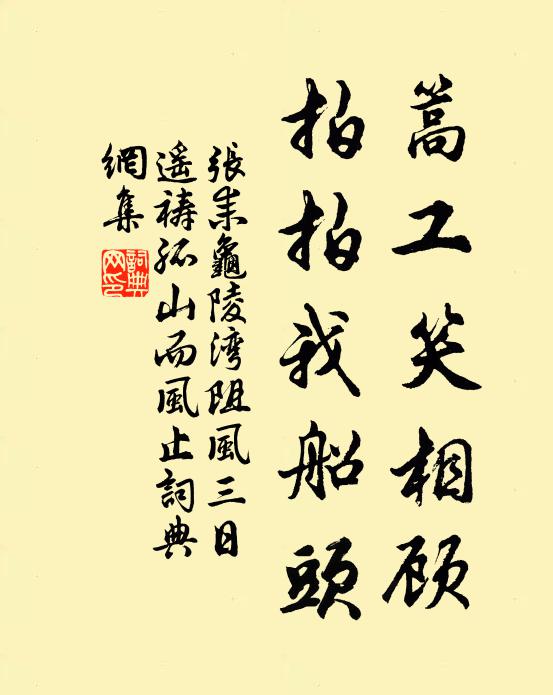 篙工笑相顾
拍拍我船頭
張耒龜陵湾阻風三日
遥祷孤山而風止詞典
網集
詞典
网印